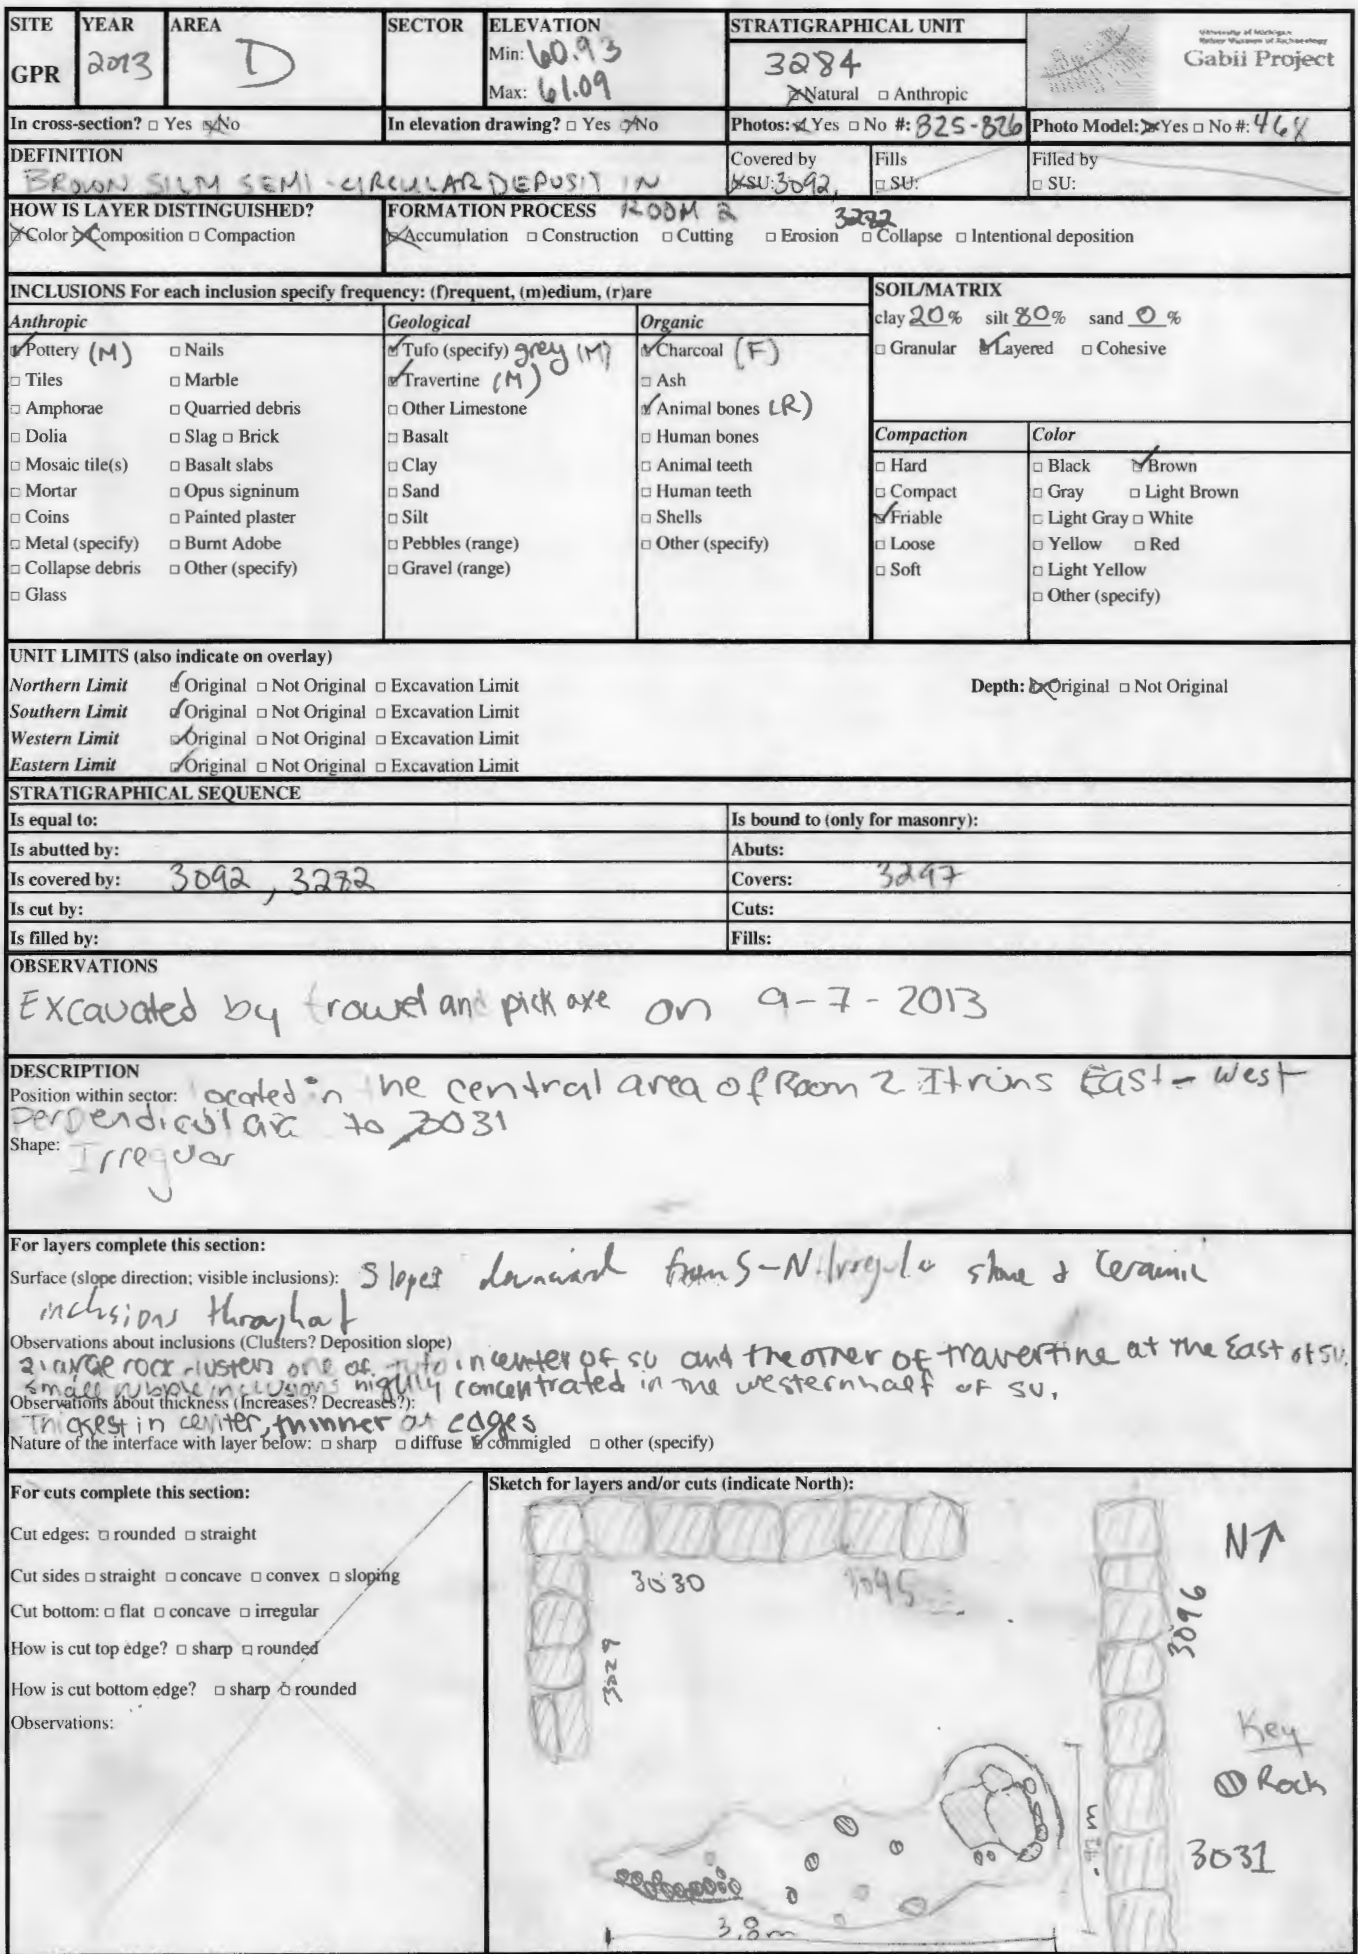 SITE YEAR AREA SECTOR ELEVATION STRATIGRAPHICAL UNIT
GPR 2013 D Min: 60.93 Max: 61.09 3284
☒ Natural □ Anthropic
University of Michigan
Kelsey Museum of Archaeology
Gabii Project
In cross-section? □ Yes ☒ No In elevation drawing? □ Yes ☒ No Photos: ☒ Yes □ No #: 825-826 Photo Model: ☒ Yes □ No #: 468
DEFINITION
BROWN SEMI-CIRCULAR DEPOSIT IN ROOM 2
Covered by
☒ SU: 3092, 3282
Fills
□ SU:
Filled by
□ SU:
HOW IS LAYER DISTINGUISHED?
☒ Color ☒ Composition □ Compaction
FORMATION PROCESS
☒ Accumulation □ Construction □ Cutting □ Erosion □ Collapse □ Intentional deposition
INCLUSIONS For each inclusion specify frequency: (f)requent, (m)edium, (r)are
Anthropic
☑ Pottery (M) □ Nails
□ Tiles □ Marble
□ Amphorae □ Quarried debris
□ Dolia □ Slag □ Brick
□ Mosaic tile(s) □ Basalt slabs
□ Mortar □ Opus signinum
□ Coins □ Painted plaster
□ Metal (specify) □ Burnt Adobe
□ Collapse debris □ Other (specify)
□ Glass
Geological
☑ Tufo (specify) grey (M)
☑ Travertine (M)
□ Other Limestone
□ Basalt
□ Clay
□ Sand
□ Silt
□ Pebbles (range)
□ Gravel (range)
Organic
☑ Charcoal (F)
□ Ash
☑ Animal bones (R)
□ Human bones
□ Animal teeth
□ Human teeth
□ Shells
□ Other (specify)
SOIL/MATRIX
clay 20% silt 80% sand 0%
□ Granular ☑ Layered □ Cohesive
Compaction
□ Hard
□ Compact
☑ Friable
□ Loose
□ Soft
Color
□ Black ☑ Brown
□ Gray □ Light Brown
□ Light Gray □ White
□ Yellow □ Red
□ Light Yellow
□ Other (specify)
UNIT LIMITS (also indicate on overlay)
Northern Limit ☑ Original □ Not Original □ Excavation Limit Depth: ☒ Original □ Not Original
Southern Limit ☑ Original □ Not Original □ Excavation Limit
Western Limit ☑ Original □ Not Original □ Excavation Limit
Eastern Limit ☑ Original □ Not Original □ Excavation Limit
STRATIGRAPHICAL SEQUENCE
Is equal to: Is bound to (only for masonry):
Is abutted by: Abuts:
Is covered by: 3092, 3282 Covers: 3297
Is cut by: Cuts:
Is filled by: Fills:
OBSERVATIONS
Excavated by trowel and pick axe on 9-7-2013
DESCRIPTION
Position within sector: located in the central area of Room 2 It runs East-West
Perpendicular to 3031
Shape: Irregular
For layers complete this section:
Surface (slope direction; visible inclusions): Slopes downward from S-N. Irregular stone & ceramic
inclusions throughout
Observations about inclusions (Clusters? Deposition slope)
2 large rock clusters one of tufo in center of SU and the other of travertine at the East of SU.
small rubble inclusions highly concentrated in the western half of SU.
Observations about thickness (Increases? Decreases?):
Thickest in center, thinner at edges
Nature of the interface with layer below: □ sharp □ diffuse ☑ commigled □ other (specify)
For cuts complete this section:
Cut edges: □ rounded □ straight
Cut sides □ straight □ concave □ convex □ sloping
Cut bottom: □ flat □ concave □ irregular
How is cut top edge? □ sharp □ rounded
How is cut bottom edge? □ sharp □ rounded
Observations:
Sketch for layers and/or cuts (indicate North):
N
3030
3095
3096
3029
Key
Rock
3031
3.8m